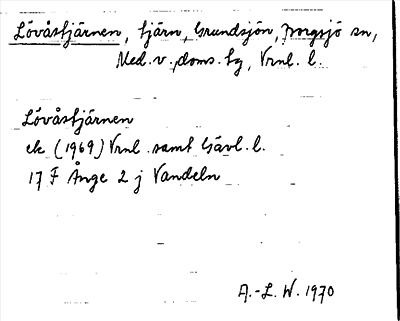 Lövåstjärnen, tjärn, Grundsjön, Borgsjö sn,
Med. v. doms. tg, Vrnl. l.
Lövåstjärnen
ek (1969) Vrnl. samt Gävl. l.
17 F Ånge 2 j Vandeln
A.-L. W. 1970